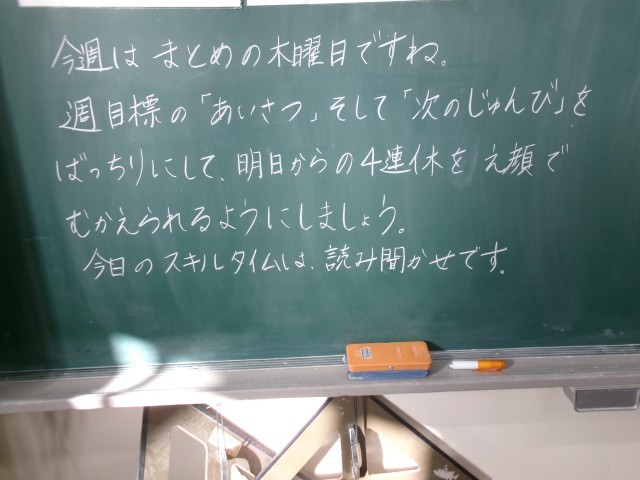 今週は まとめの木曜日ですね。
週目標の「あいさつ」そして「次のじゅんび」を
ばっちりにして、明日からの4連休を え顔で
むかえられるようにしましょう。
今日のスキルタイムは、読み聞かせです。